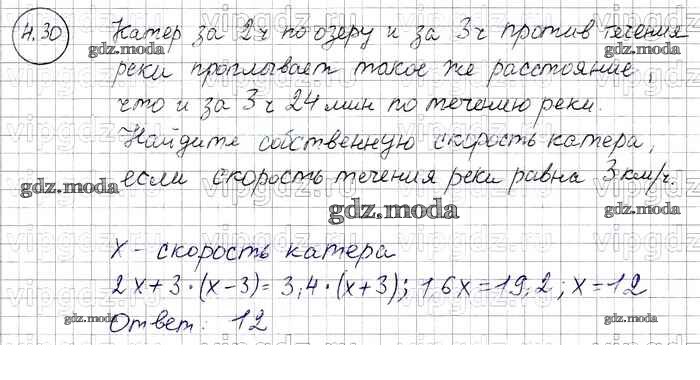 4.30
Катер за 2ч по озеру и за 3ч против течения
реки проплывает такое же расстояние,
что и за 3ч 24мин по течению реки.
Найдите собственную скорость катера,
если скорость течения реки равна 3км/ч.
x - скорость катера
2x+3·(x-3)=3,4·(x+3); 1,6x=19,2; x=12
Ответ: 12
gdz.moda
gdz.moda
gdz.moda
gdz.moda
gdz.moda
gdz.moda
gdz.moda
gdz.moda